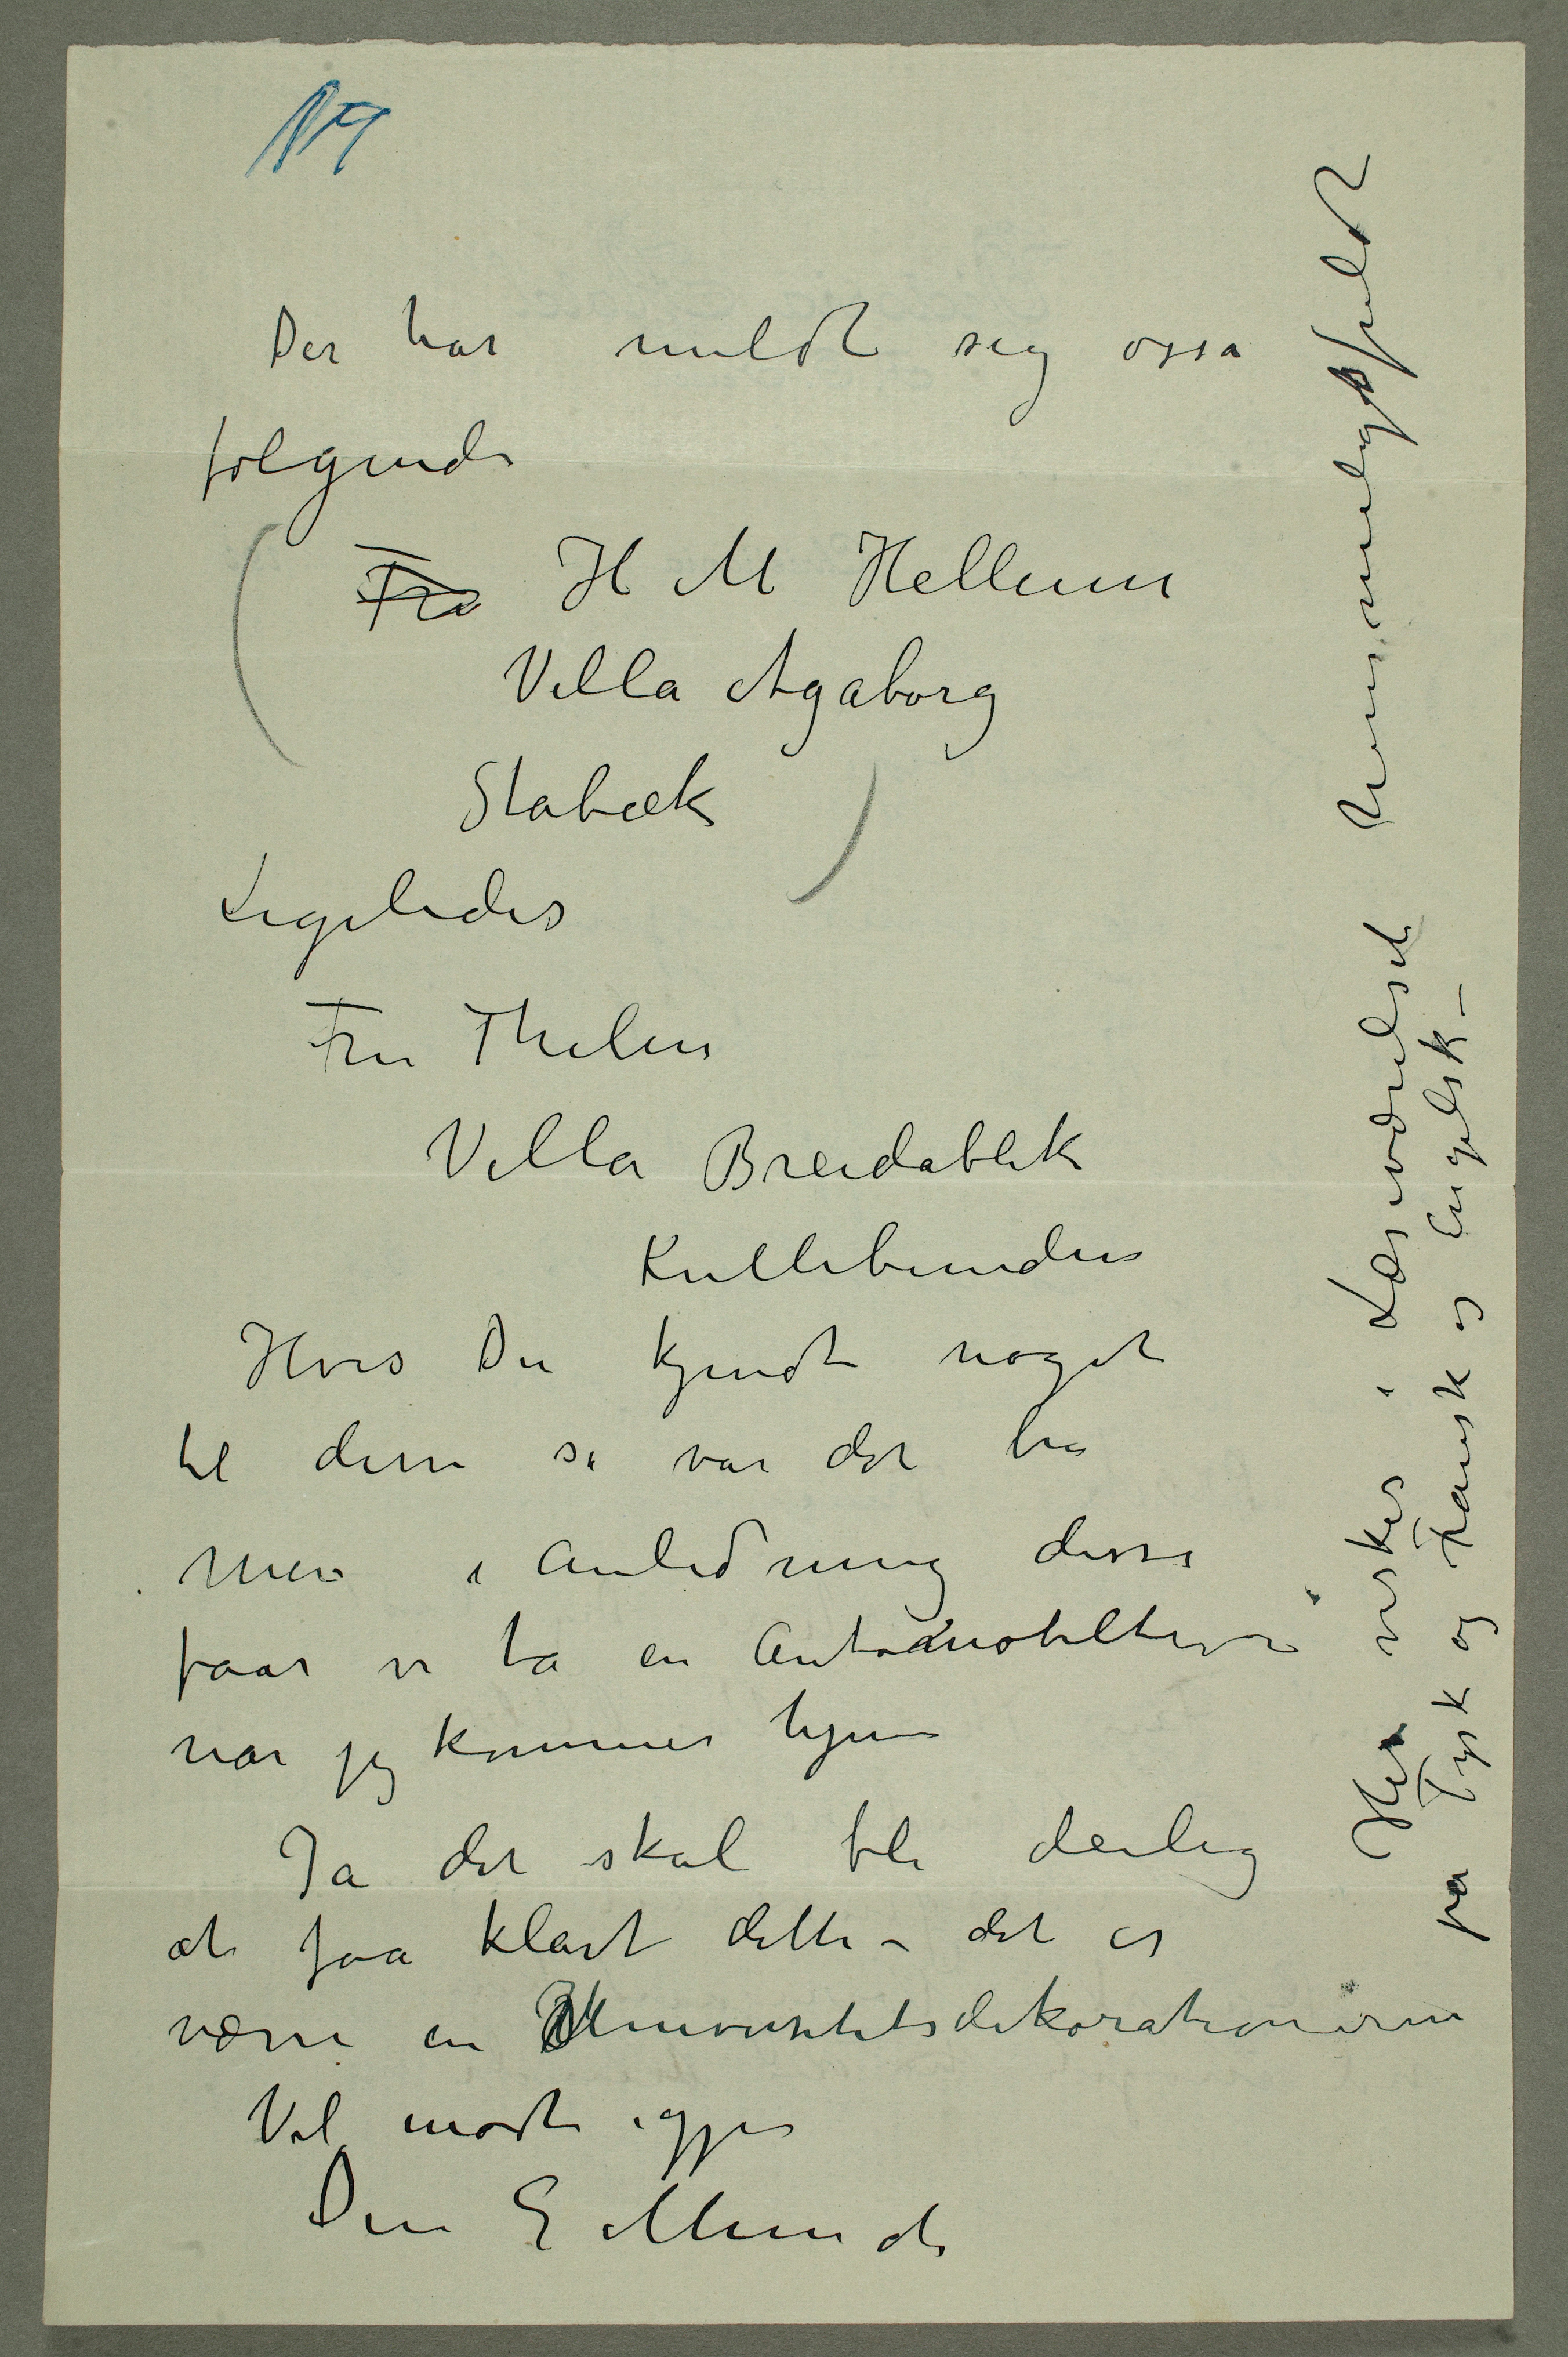 Der har meldt sig ossa
følgende
Fra H M Hellum
Villa Agaborg
Stabæk
Ligeledes
Fru Thelen
Villa Breidablik
Kullebunden
Hvis Du kjendte noget
til disse så var det bra
Men i Anledning disse
faar vi ta en Automobiltur
når jeg kommer hjem
Ja det skal bli deilig
at faa klart dette – det er
værre en Universitetsdekorationerne
Vel mødt igjen
Din E Munch
Her viskes i Læseværelset hemmelighedsfuldt
på Tysk og Fransk og Engelsk –